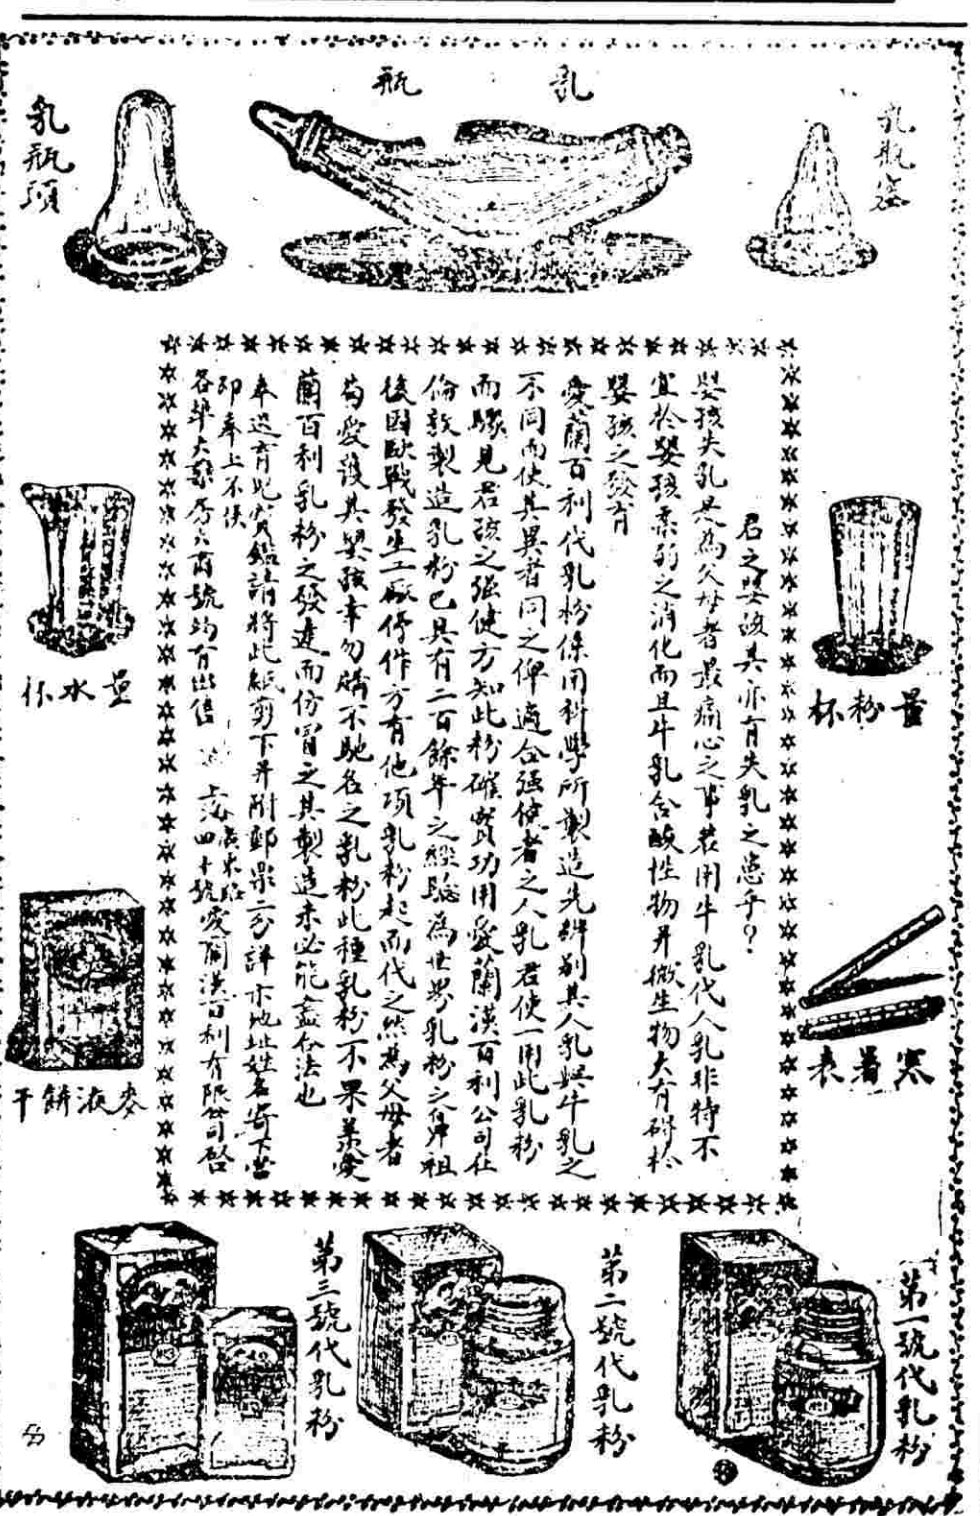 乳瓶
乳瓶塞
乳瓶頭
君之嬰孩其亦有失乳之患乎?
嬰孩失乳是為父母者最痛心之事若用牛乳代人乳非特不
宜於嬰孩柔弱之消化而且牛乳含酸性物并微生物大有碍於
嬰孩之發育
愛蘭百利代乳粉係用科學所製造先辨別其人乳與牛乳之
不同而使其異者同之俾適合強健者之人乳君使一用此乳粉
而驟見君孩之强健方知此粉確實功用愛蘭漢百利公司在
倫敦製造乳粉已具有二百餘年之經驗為世界乳粉之鼻祖
後因歐戰發生工廠停作方有他項乳粉起而代之然為父母者
苟愛護其嬰孩幸勿購不馳名之乳粉此種乳粉不果羨愛
蘭百利乳粉之發達而仿冒之其製造未必能盡合法也
奉送育兒寶鑑請將此紙剪下并附郵票二分詳示地址姓名寄下當
即奉上不悮
各華大藥房大商號均有出售
上海廣東路四十號愛蘭漢百利有限公司啓
量粉杯
量水杯
寒暑表
麥液餅干
第一號代乳粉
第二號代乳粉
第三號代乳粉